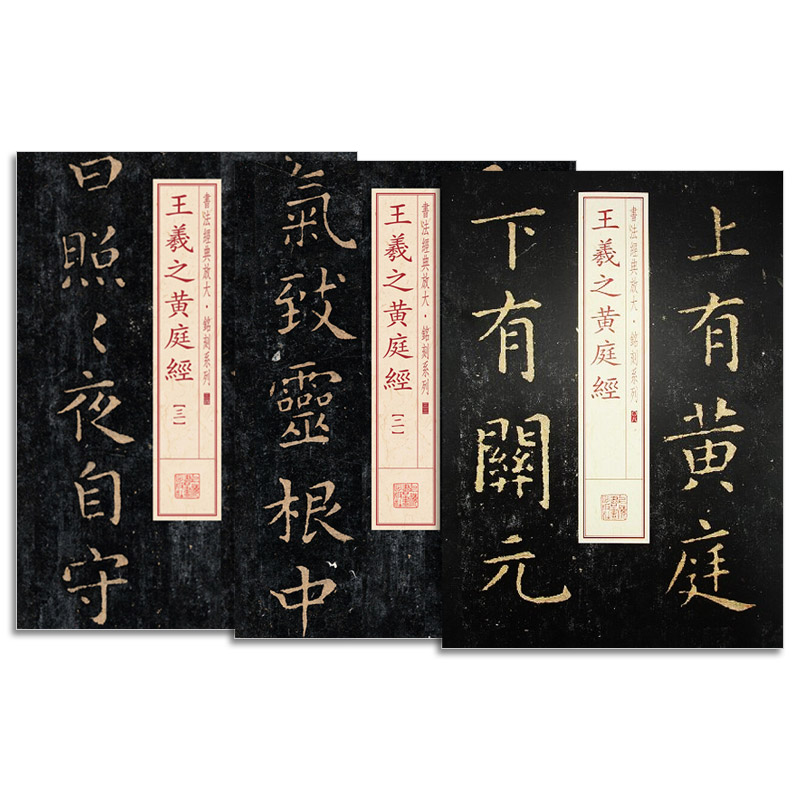 日照〻夜自守
王羲之黄庭經
【三】
書法經典放大·銘刻系列
氣致靈根中
王羲之黄庭經
【二】
書法經典放大·銘刻系列
上有黄庭
下有關元
王羲之黄庭經
書法經典放大·銘刻系列